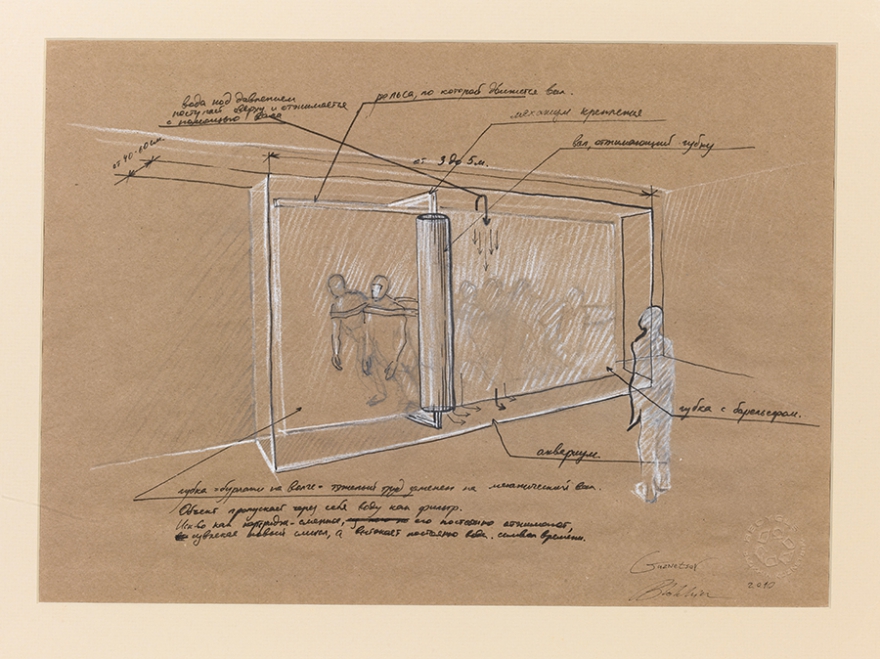 вода под давлением
поступает сверху и отжимается
с помощью вала
рельса, по которой движется вал.
механизм крепления
вал, отжимающий губку
от 40-60 см.
от 3 до 5 м.
губка с барельефом.
аквариум
губка "бурлаки на волге" - тяжелый труд заменен на механический вал.
Объект пропускает через себя воду как фильтр.
Искво как картридж - сменное, его постоянно отжимают,
новый смысл, а вытекает постоянно вода, символ времени.
2010